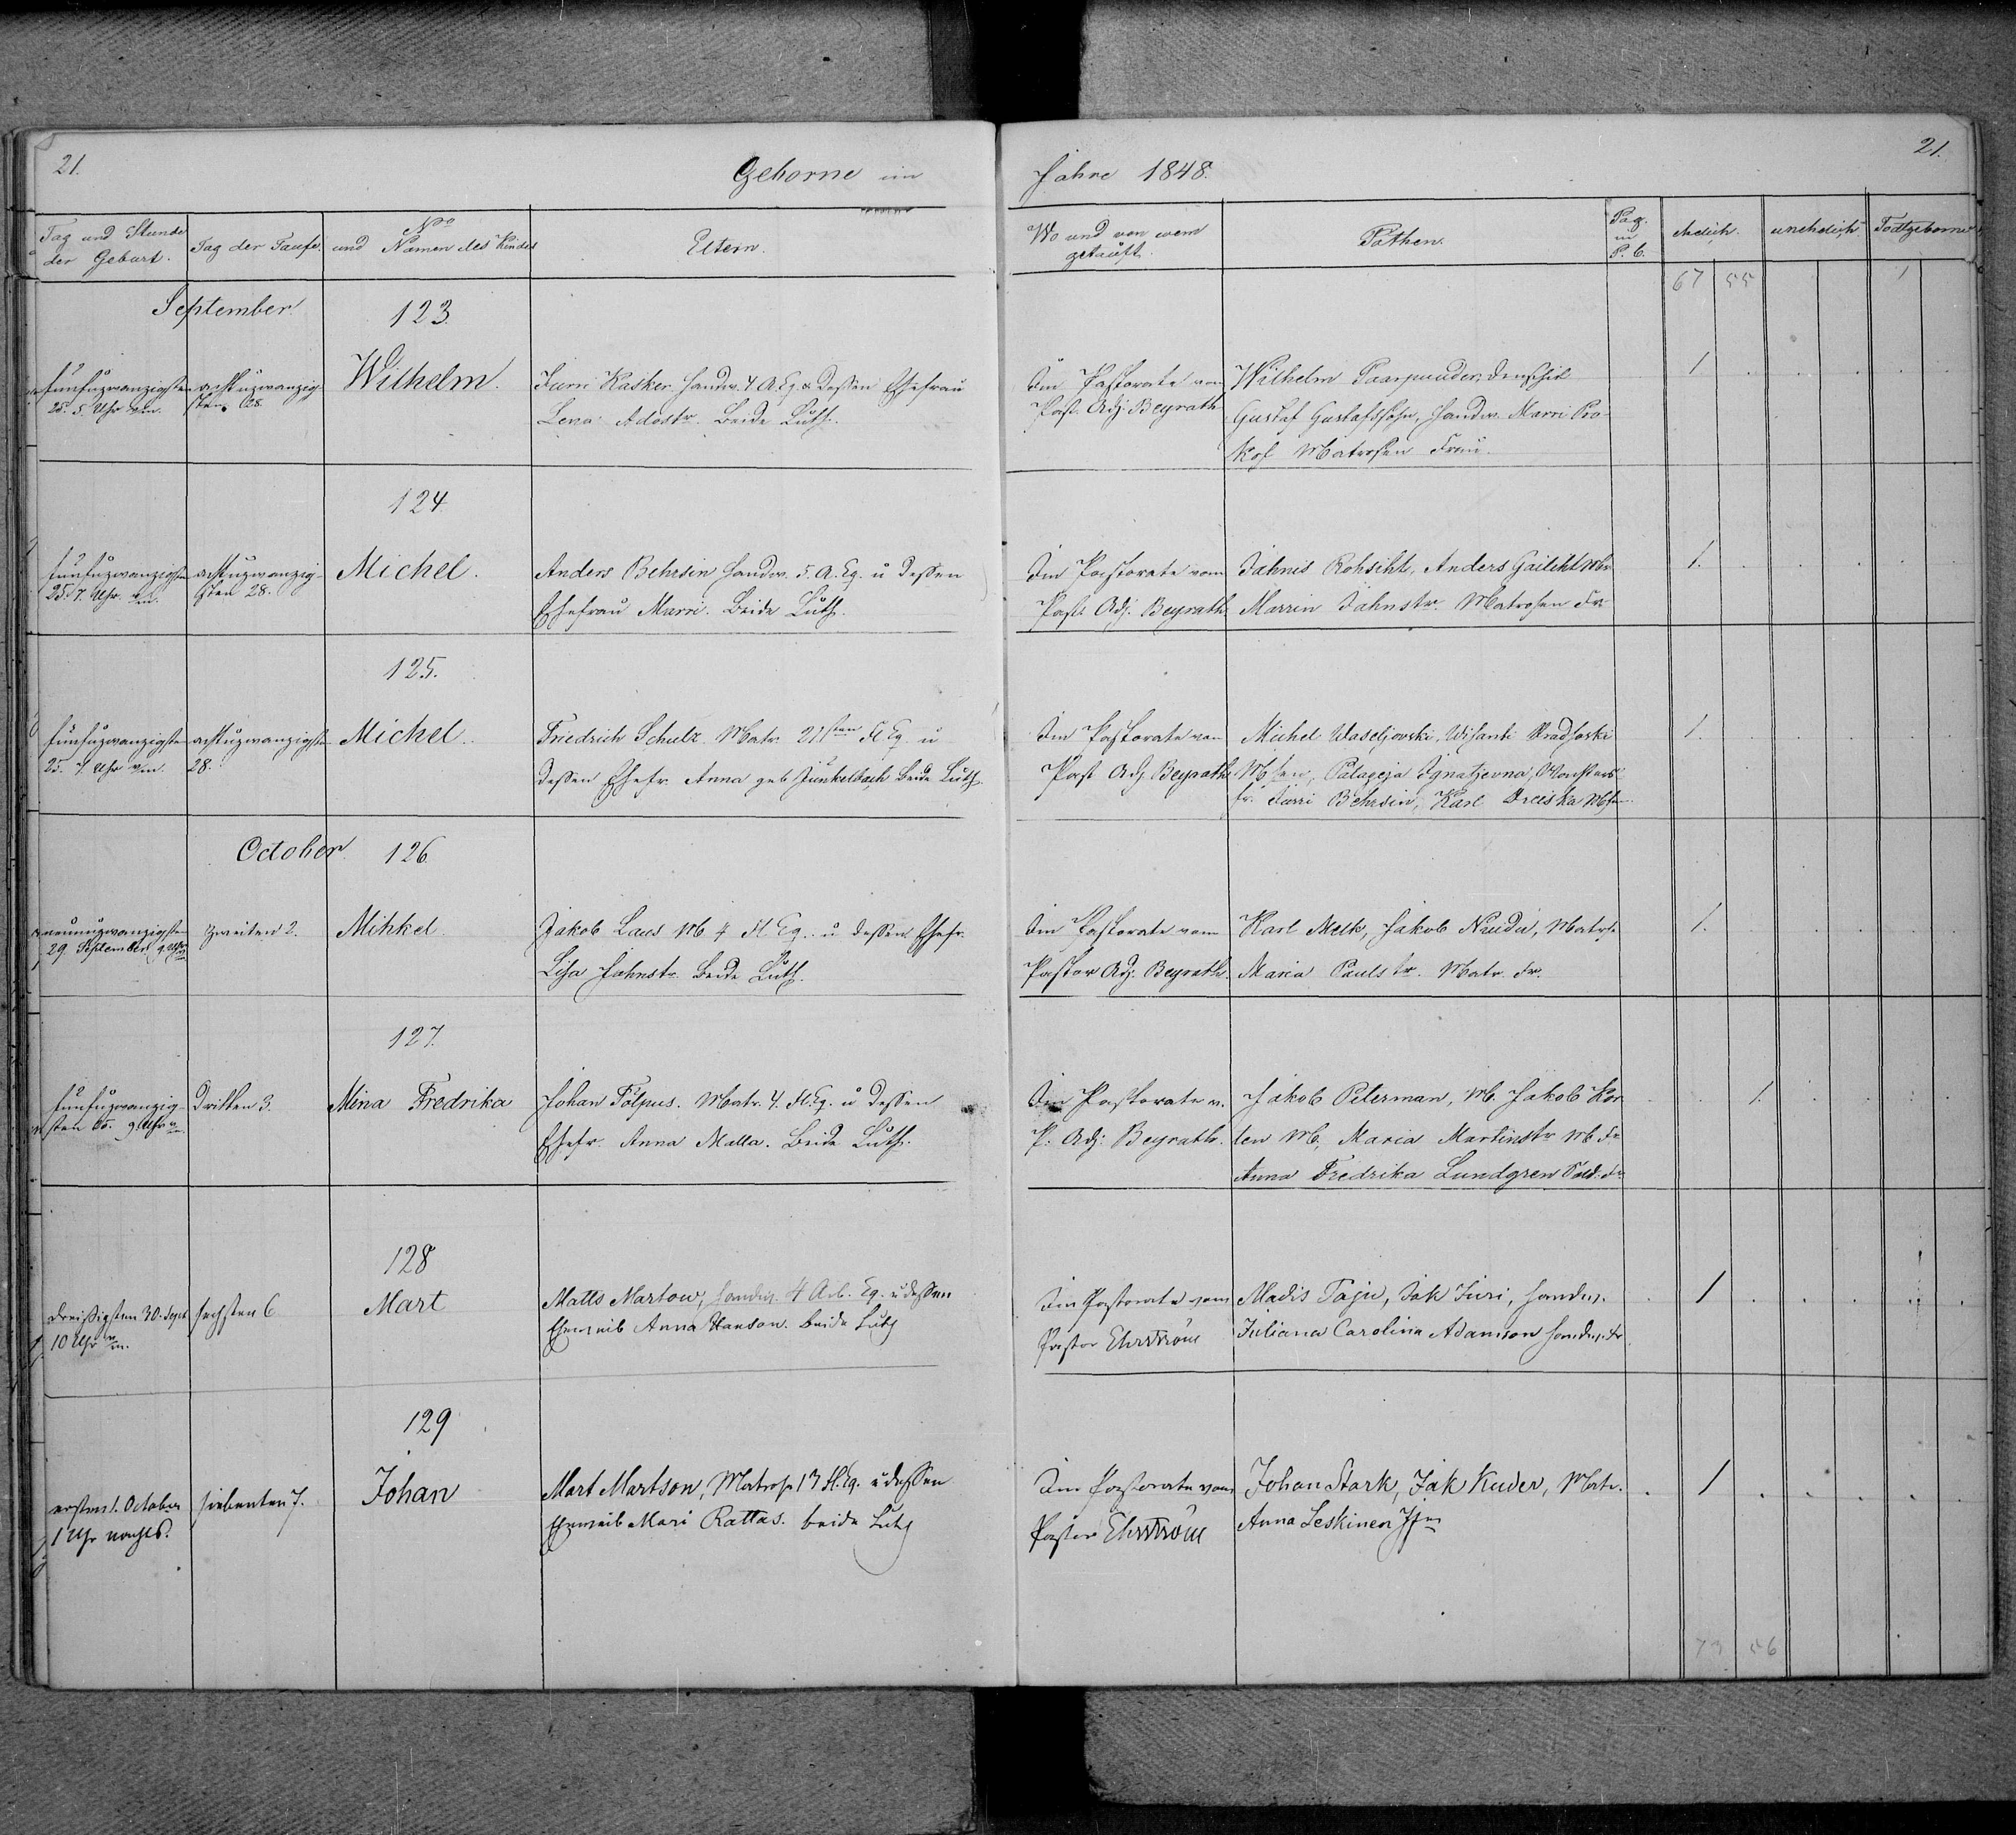 21.
Geborne im
Jahre 1848.
21.
Tag und Stunde der Geburt.
Tag der Taufe.
No und Namen des Kindes
Eltern.
Wo und von wem getauft.
Pathen.
Pag. in P. B.
ehelich.
unehelich.
Todtgeborne
67 55 1
September
123.
fünfuzwanzigsten
25. 5. Uhr vm.
achtuzwanzig-
sten 28.
Wilhelm.
Jurri Kasker Handw. 4 A. Eq. u dessen Ehefrau
Lena Adostr. Beide Luth.
Im Pastorate von
Past. Adj. Beyrath
Wilhelm Paarpuuder, Denschik
Gustaf Gustafssohn, Handw. Marri Pro-
kof Matrosen Frau.
1
124
fünfuzwanzigsten
25. 7. Uhr vm.
achtuzwanzig-
sten 28.
Michel.
Anders Behrsin Handw. 5. A. Eq. u dessen
Ehefrau Marri. Beide Luth.
Im Pastorate vom
Past. Adj. Beyrath.
Jahnis Rohsiht, Anders Gailiht
Marrin Jahnstr. Matrosen Fr.
1.
125.
fünfuzwanzigsten
25. 7. Uhr vm.
achtuzwanzigsten
28.
Michel.
Friedrich Schulz Matr. 21sten Fl Eq. u
dessen Ehefr. Anna geb Junkelbach beide Luth.
Im Pastorate von
Past Adj. Beyrath
Michel Waseljovski,
Palageja Ignatjevna,
fr. Jurri Behrsin, Karl
1.
October
126.
neunuzwanzigsten
29. September 9 Uhr
zweiten 2.
Mihkel.
Jakob Laus M 4 Fl Eq. u dessen Ehefr.
Lisa Jahnstr. beide Luth.
Im Pastorate vom
Pastor Adj. Beyrath.
Karl Melk, Jakob Naudu, Matros.
Maria Paulstr. Matr. Fr.
1.
127.
fünfuzwanzig-
sten 25. 9 Uhr
Dritten 3.
Mina Fredrika
Johan Tölpus. Matr. 4. Fl. Eq. u dessen
Ehefr. Anna Malla. Beide Luth.
Im Pastorate v.
P. Adj. Beyrath.
Jakob Peterman, M. Jakob Kor
ten M, Maria Martinstr M. Fr
Anna Fredrika Lundgren Sold. Fr
1.
128
dreißigsten 30. Sept
10 Uhr vm.
sechsten 6
Mart
Matts Martow, Handw. 4 Arb. Eq. u dessen
Eheweib Anna Hanson. beide Luth
Im Pastorate vom
Pastor Ehrström
Madis Taju, Jak Juri, Handw.
Juliana Carolina Adamson Handw. Fr
1
129
ersten 1. October
1 Uhr nachts.
siebenten 7.
Johan
Mart Martson, Matrose 17 Fl. Eq. u dessen
Eheweib Mari Rattas. beide Luth
Im Pastorate vom
Pastor Ehrström
Johan Stark, Jak Kuder, Matr.
Anna Leskinen
1
73 56